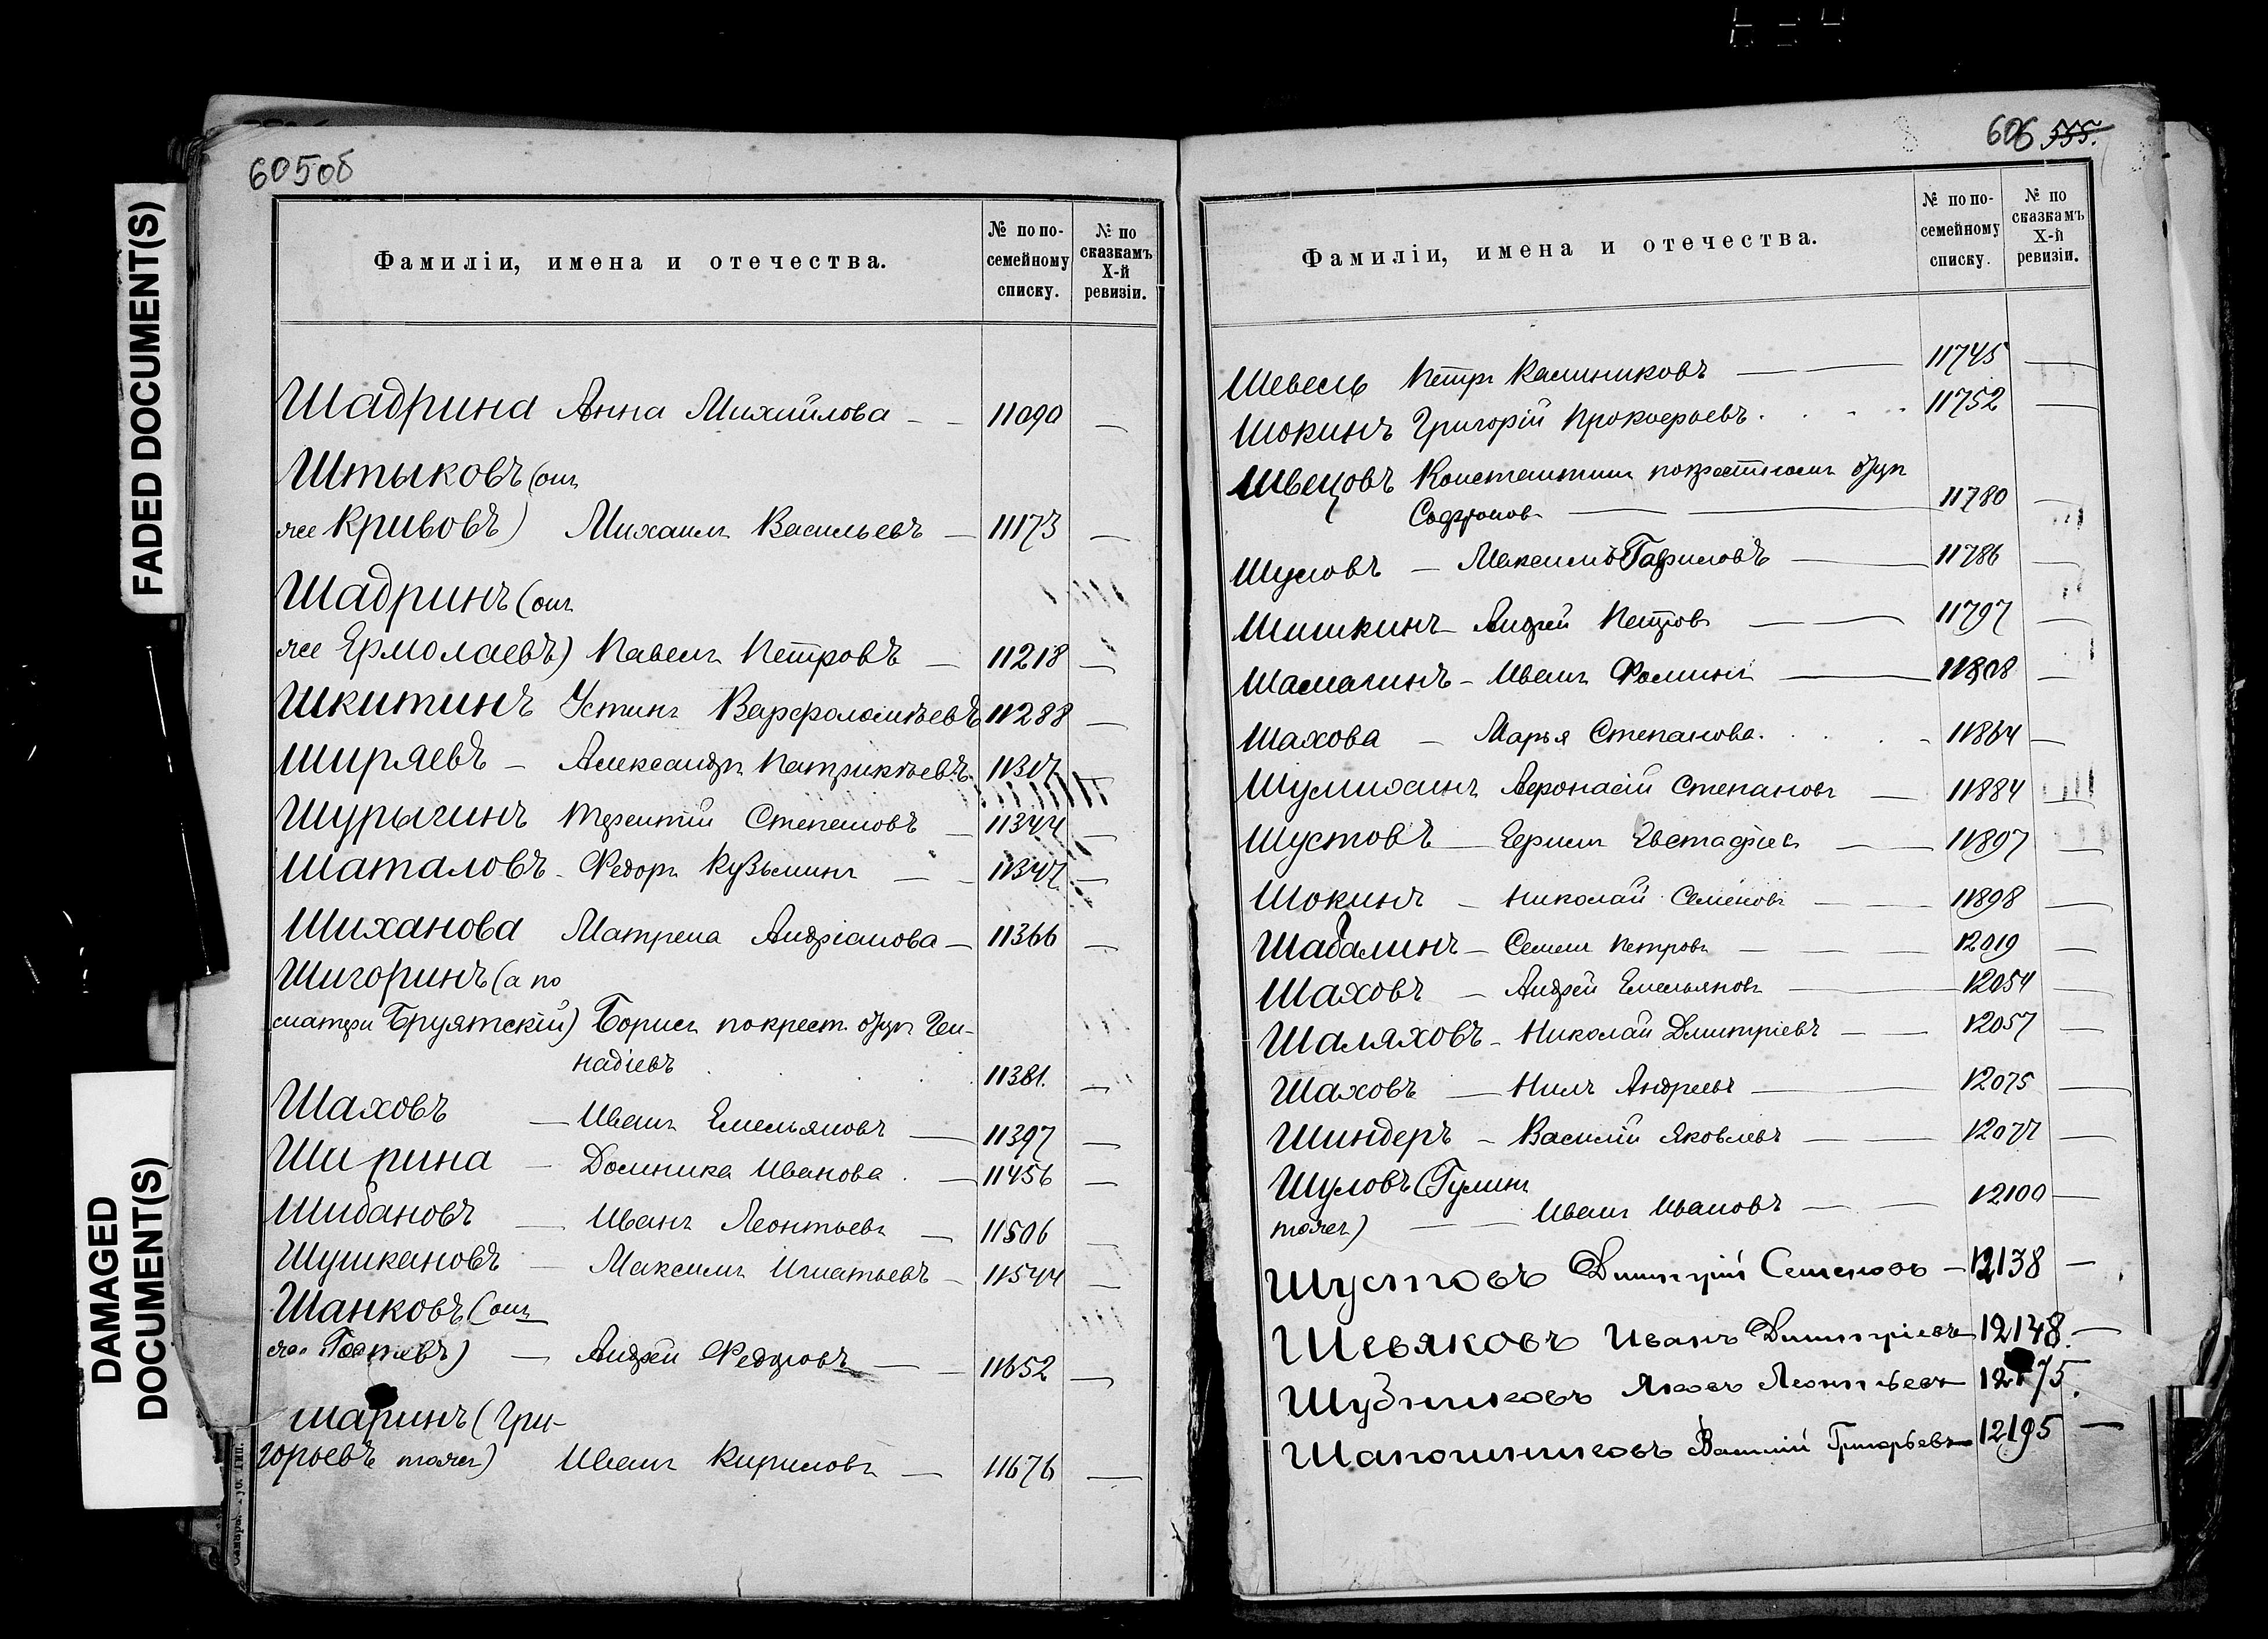 605об
Фамиліи, имена и отечества.
№ по по-
семейному
списку.
№ по
сказкамъ
X-й
ревизіи.
Шадрина Анна Михайлова - - 11090 —
Штыковъ (онъ
же Кривовъ) Михаилъ Васильевъ — 11173 —
Шадринъ (онъ
же Ермолаевъ) Павелъ Петровъ — 11218 —
Шкитинъ Устинъ Варфоломѣевъ 11288 —
Ширяевъ — Александръ Патрикѣевъ. 11317 —
Шурыгинъ Терентій Степановъ — 11344 —
Шаталовъ - Федоръ Кузьминъ — - 11347 —
Шиханова Матрена Андріанова — 11366 —
Шигоринъ (а по
матери Бруятскій) Борисъ по крест. отцу Ген-
надіевъ 11381. —
Шаховъ — Иванъ Емельяновъ — 11397 —
Ширина — Домника Иванова . — 11456 —
Шибановъ — Иванъ Леонтьевъ — 11506 —
Шушкановъ — Максимъ Игнатьевъ - 11544 —
Шанковъ (онъ
же) — Андрей Федоровъ — - 11652 —
Шаринъ (Гри-
горьевъ тожъ) Иванъ Кириловъ — 11676 —
606 555.
Фамиліи, имена и отечества.
№ по по-
семейному
списку.
№ по
сказкамъ
X-й
ревизіи.
Шевель Петръ Калиниковъ — — 11745 —
Шокинъ Григорій Прокофьевъ . . - . 11752 —
Швецовъ Константинъ по крестному отцу
Софронов — — 11780 —
Шуловъ — Максимъ Гафиловъ — 11786 —
Шишкинъ — Андрей Петровъ — — 11797 —
Шамагинъ - Иванъ Фоминъ — 11808 —
Шахова — Марья Степанова. . . - 11864 —
Шумихинъ Афонасій Степановъ — 11884 —
Шустовъ — Ефимъ Евстафіевъ — — 11897 —
Шокинъ — Николай Семеновъ — — 11898 —
Шабалинъ — Семенъ Петровъ — — 12019 —
Шаховъ — Андрей Емельяновъ — 12054 —
Шаляховъ - Николай Дмитріевъ — — 12057 —
Шаховъ — Нилъ Андреевъ — 12075 —
Шиндеръ — Василій Яковлевъ — — 12077 —
Шуловъ (Гулинъ
тожъ) — — Иванъ Ивановъ — — 12100 —
Шустовъ Дмитрій Семеновъ — 12138 —
Шевяковъ Иванъ Дмитріевъ 12148. —
Шубниковъ Яковъ Леонтьевъ
Шапошниковъ Василій Григорьевъ 12195 —
FADED DOCUMENT(S)
DAMAGED
DOCUMENT(S)